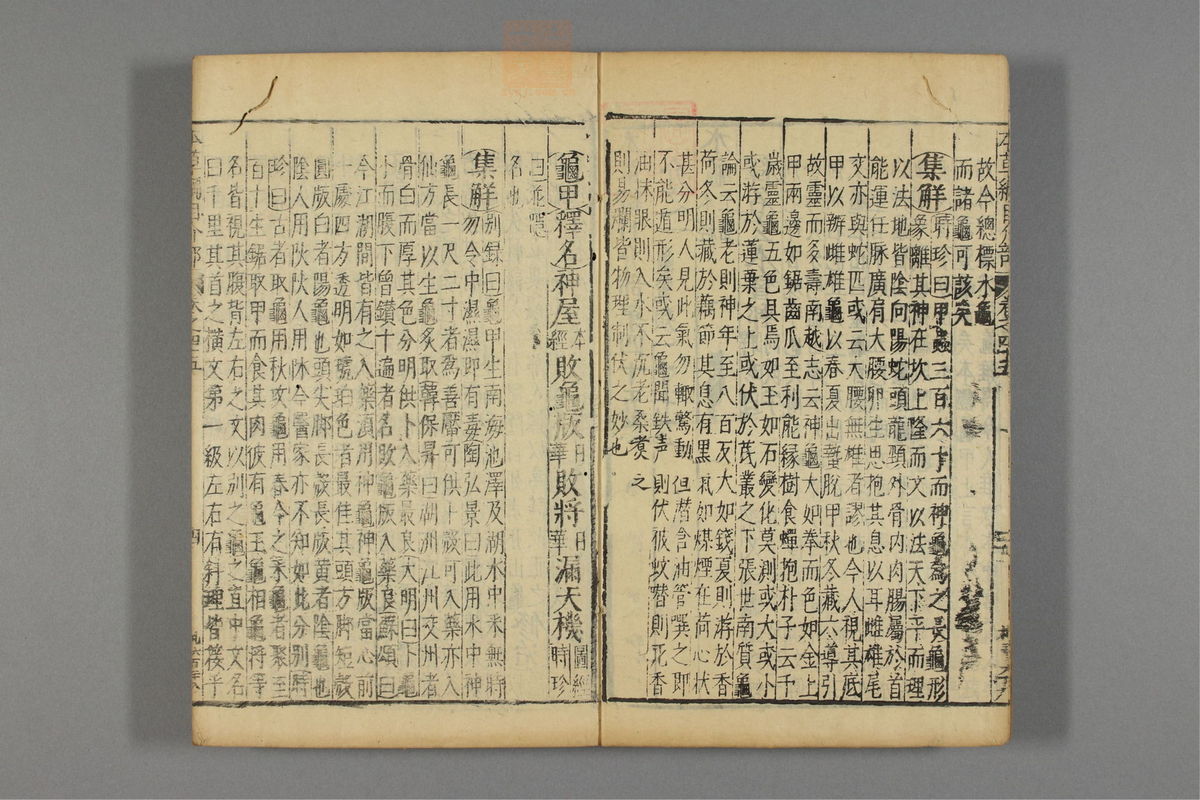 故今總標水龜
而諸龜可該矣
集解時珍曰甲蟲三百六十而神龜為之長龜形
象離其神在坎上隆而文以法天下平而理
以法地背陰向陽蛇頭龍頸外骨内肉腸屬於首
能運任脉廣肩大腰卵生思抱其息以耳雌雄尾
交亦與蛇匹或云大腰無雄者謬也今人視其底
甲以辨雌雄龜以春夏出蟄脫甲秋冬藏穴導引
故靈而多壽南越志云神龜大如拳而色如金上
甲兩邊如鋸齒爪至利能緣樹食蟬抱朴子云千
歲靈龜五色具焉如玉如石變化莫測或大或小
或游於蓮葉之上或伏於蓍叢之下張世南質龜
論云龜老則神年至八百反大如錢夏則游於香
荷冬則藏於藕節其息有黑氣如煤煙在荷心狀
甚分明人見此氣勿輙驚動但潜含油管噀之即
不能遁形矣或云龜聞鉄声則伏被蚊噆則死香
油抹眼則入水不沉老桑煮之
則易爛皆物理制伏之妙也
龜甲釋名神屋本經敗龜版日華敗將日華漏天機圖經時珍
曰並隱
名也
集解别録曰龜甲生南海池澤及湖水中采無時
勿令中濕濕即有毒陶弘景曰此用水中神
龜長一尺二寸者為善厴可供卜殻可入藥亦入
仙方當以生龜炙取韓保昇曰湖州江州交州者
骨白而厚其色分明供卜入藥最良大明曰卜龜
小而腹下曾鑽十遍者名敗龜版入藥良蘇頌曰
今江湖間皆有之入藥須用神龜神龜版當心前
一處四方透明如琥珀色者最佳其頭方脚短殻
圓版白者陽龜也頭尖脚長殻長版黄者陰龜也
陰人用陽陽人用陰今醫家亦不知如此分别時
珍曰古者取龜用秋攻龜用春今之采龜者聚至
百十生鋸取甲而食其肉彼有龜王龜相龜將等
名皆視其腹背左右之文以别之龜之直中文名
曰千里其首之横文第一級左右有斜理皆接乎